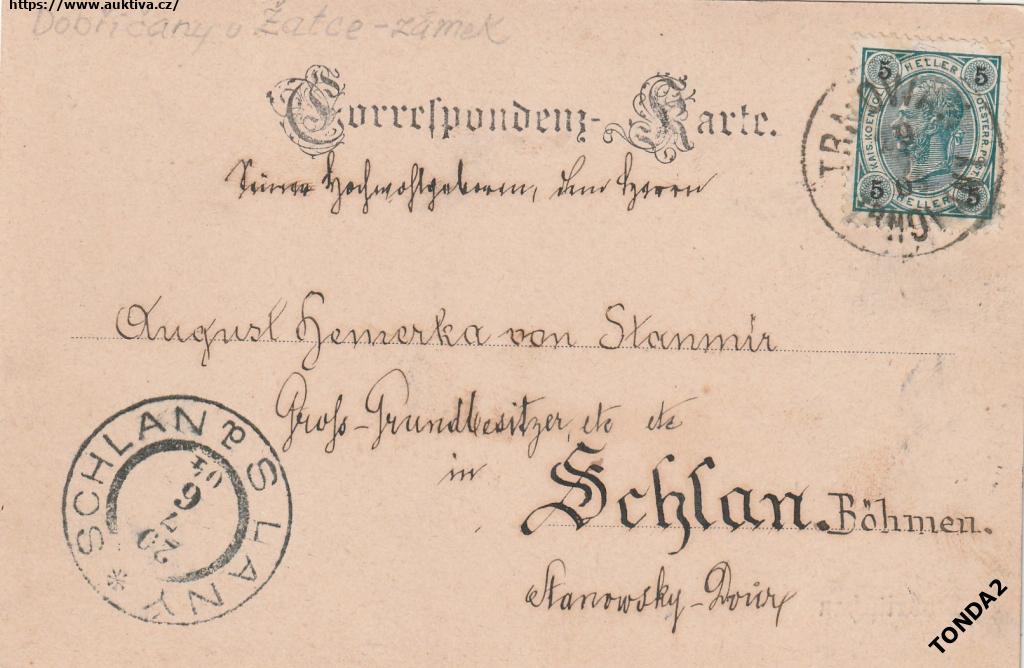 https://www.auktiva.cz/
Dobříčany u Žatce - zámek
Correspondenz-Karte.
5 HELLER 5
KAIS. KOENIGL. OESTERR. POST
5 HELLER 5
Seiner Hochwohlgeboren, dem Herrn
August Hemerka von Stanmir
Gross-Grundbesitzer, etc etc
in
Schlan. Böhmen.
Stanowsky-Dour
SCHLAN SLANY *
20
6
04
TONDA2